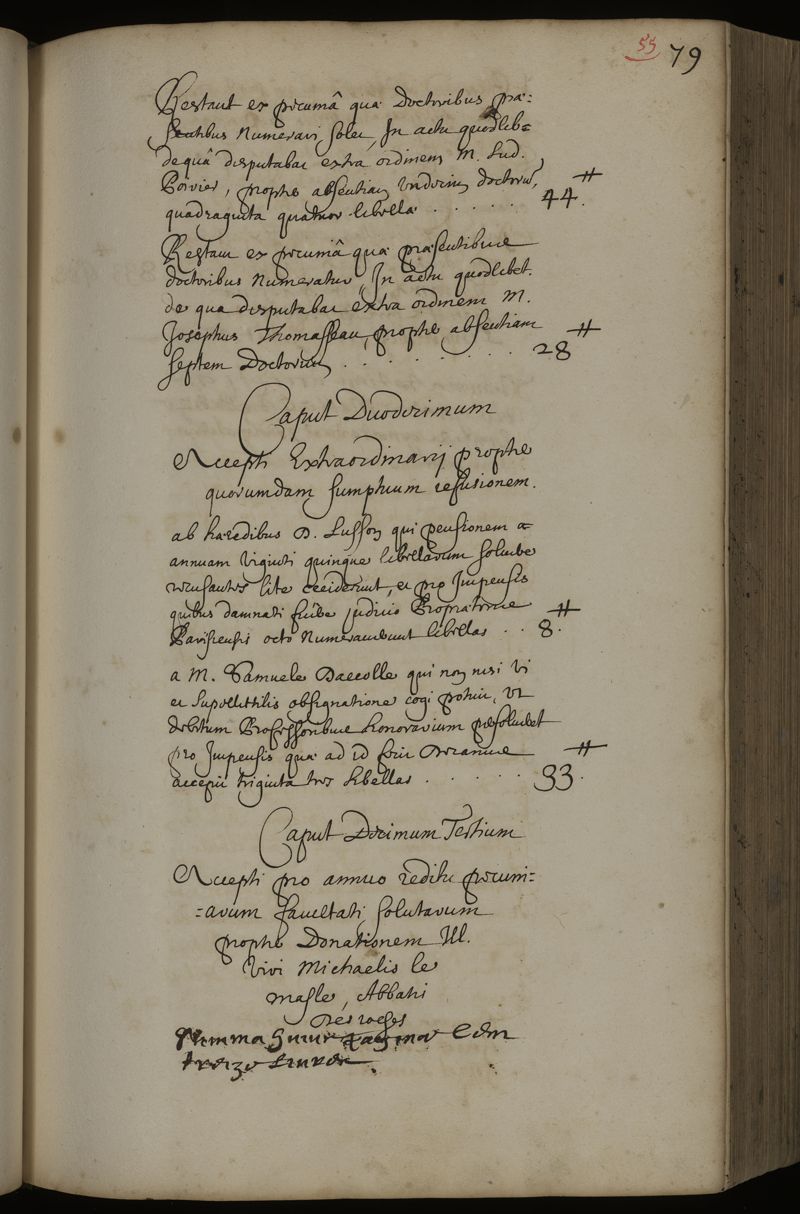 55 79
Restant ex pecuniâ quæ Doctoribus præ:
sentibus numerari solet, In actu quodlib=
de quâ disputabat extra ordinem M. Lud.
Poirier, propter absentiam undecim doctorum,
quadraginta quatuor libellæ . . . . . 44.
Restant ex pecuniâ quæ præsentibus
doctoribus numeratur, In actu quodlibet.
de qua disputabat extra ordinem M.
Josephus Thomasseau, propter absentiam
septem Doctorum . . . . . . . . 28
Caput Duodecimum
Accepti Extraordinarij propter
quorumdam sumptuum refusionem.
ab hæredibus D. Lusson qui pensionem
annuam viginti quinque libellarum solvere
recusantes lite ceciderunt, et pro Impensis
quibus damnati fuere judicio Prætoris
Parisiensis octo numeraverunt libellas . . 8.
a M. Samuele Dacolle qui non nisi vi
et supellectilis obsignatione cogi potuit, ut
debitum Professoribus honorarium persolveret
pro Impensis quæ ad id fecit Decanus
accepit triginta tres libellas . . . . . 33.
Caput Decimum Tertium
Accepti pro annuo reditu pecuni:
=arum facultati solutarum
propter Donationem Ill.
Viri Michaelis le
masle, Abbatis
Des roches
Summa huius paginæ Cem
treize livres.